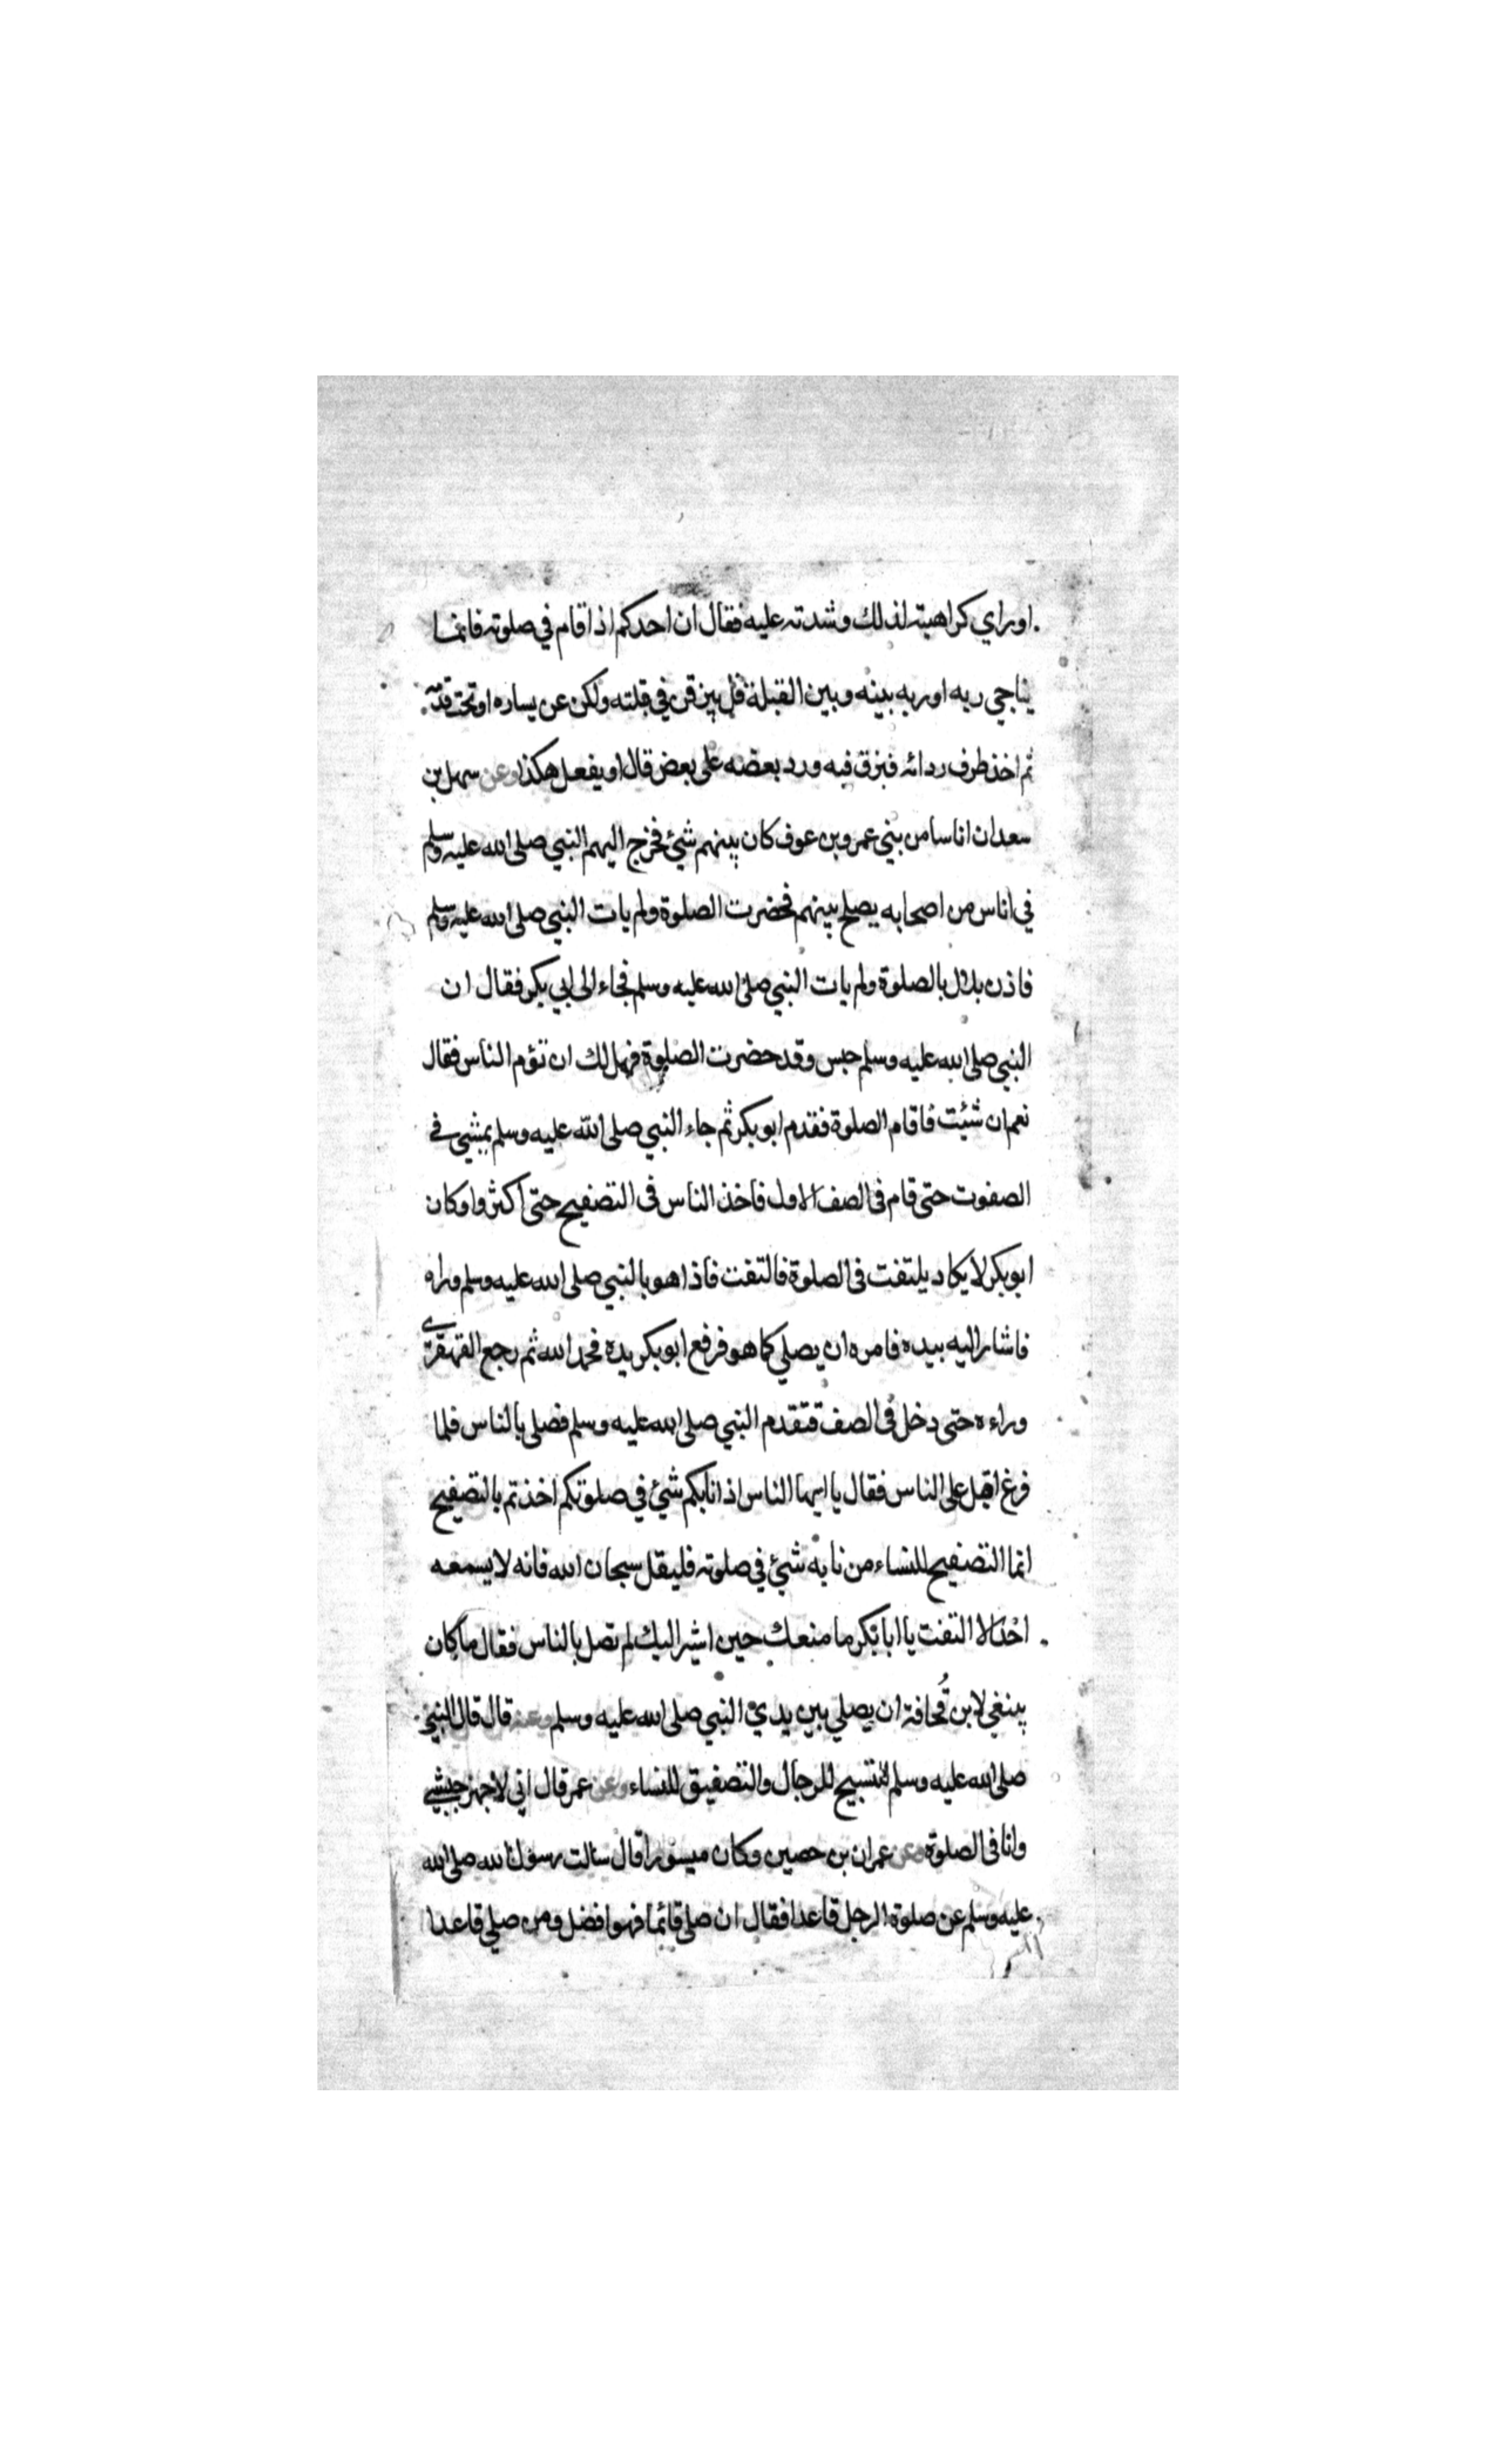 اوراي كراهيته لذلك وشدته عليه فقال ان احدكم اذا قام في صلوته فانما
يناجي ربه اوربه بينه وبين القبلة فلا يبزقن في قبلته ولكن عن يساره اوتحت قدمه
ثم اخذ طرف ردائه فبزق فيه ورد بعضه على بعض قال او يفعل هكذا وعن سهل بن
سعد ان اناسا من بني عمرو بن عوف كان بينهم شئ فخرج اليهم النبي صلى الله عليه وسلم
في اناس من اصحابه يصلح بينهم فحضرت الصلوة ولم يات النبي صلى الله عليه وسلم
فاذن بلال بالصلوة ولم يات النبي صلى الله عليه وسلم فجاء الى ابي بكر فقال ان
النبي صلى الله عليه وسلم حبس وقد حضرت الصلوة فهل لك ان تؤم الناس فقال
نعم ان شئت فاقام الصلوة فقدم ابو بكر ثم جاء النبي صلى الله عليه وسلم يمشي في
الصفوت حتى قام فى الصف الاول فاخذ الناس فى التصفيح حتى اكثروا وكان
ابو بكر لا يكاد يلتفت فى الصلوة فالتفت فاذا هو بالنبي صلى الله عليه وسلم وراه
فاشار اليه بيده فامره ان يصلي كما هو فرفع ابو بكر يده فحمد الله ثم رجع القهقرى
وراءه حتى دخل فى الصف فتقدم النبي صلى الله عليه وسلم فصلى بالناس فلما
فرغ اقبل على الناس فقال يا ايها الناس اذا نابكم شئ في صلوتكم اخذتم بالتصفيح
انما التصفيح للنساء من نابه شئ في صلوته فليقل سبحان الله فانه لا يسمعه
احد الا التفت يا ابا بكر ما منعك حين اشير اليك لم تصل بالناس فقال ما كان
ينبغي لابن قُحافة ان يصلي بين يدي النبي صلى الله عليه وسلم وعنه قال قال النبي
صلى الله عليه وسلم التسبيح للرجال والتصفيق للنساء وعن عمر قال اني لاجهز جيشي
وانا فى الصلوة وعن عمران بن حصين وكان ميسورا قال سالت رسول الله صلى الله
عليه وسلم عن صلوة الرجل قاعدا فقال ان صلى قائما فهو افضل ومن صلي قاعدا